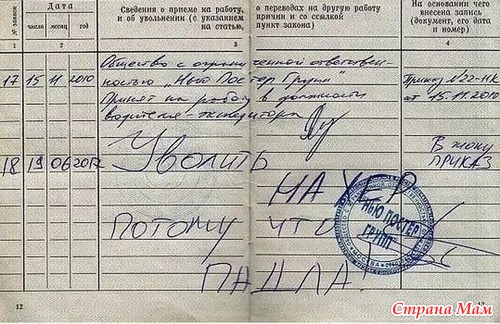 № записи
Дата
Сведения о приеме на работу, о переводах на другую работу
и об увольнении (с указанием причин и со ссылкой
на статью, пункт закона)
На основании чего
внесена запись
(документ, его дата
и номер)
1 2 3 4
17 15 11 2010 Общество с ограниченной ответствен-
ностью "Нью Постер Групп"
Приказ №22-НК
Принят на работу в должности
от 15.11.2010
водителя-экспедитора
18 19 06 2012 Уволить
В жопу
ПРИКАЗ
НА ХЕР
ПОТОМУ ЧТО
ПАДЛА!
НЬЮ ПОСТЕР
ГРУПП
МОСКВА
12
13
Страна Мам